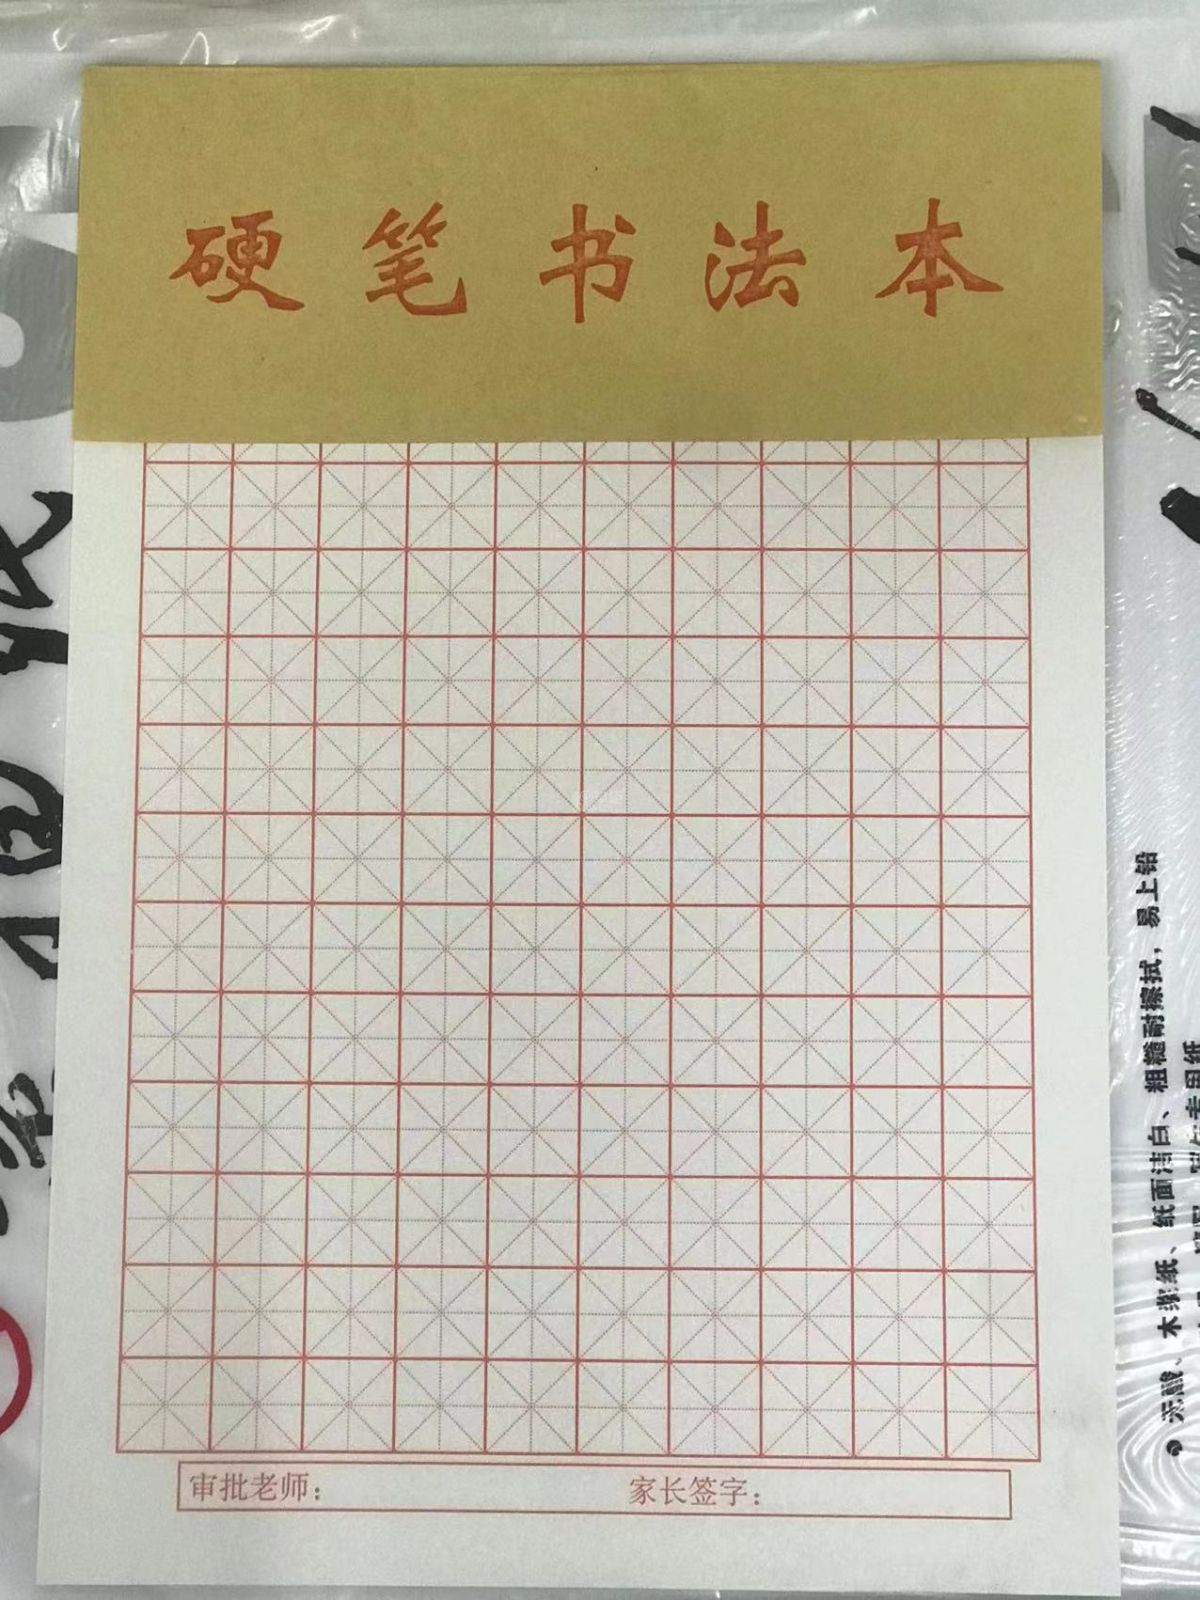 硬笔书法本
审批老师： 家长签字：
无酸、木浆纸、纸面洁白、粗糙耐擦拭，易上铅